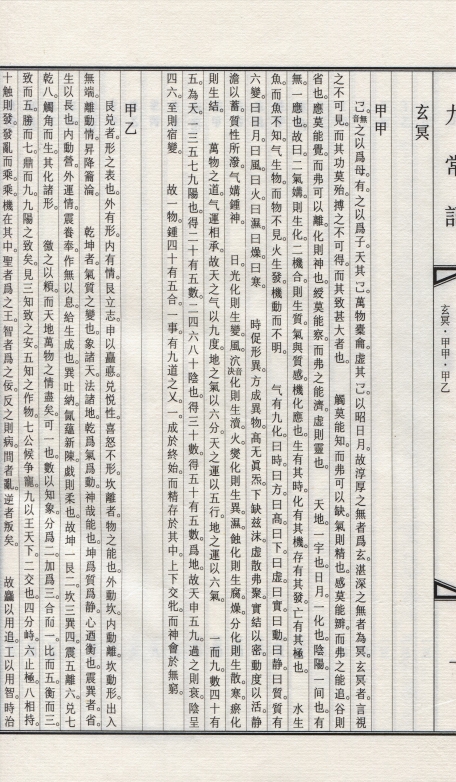 九常記
玄冥·甲甲·甲乙
一
玄冥
之以爲母。有之以爲子。天其己。萬物臺龠虛其己。以昭日月。故淳厚之無者爲玄。湛深之無者爲冥。玄冥者。言視
之不可見而其功莫殆。搏之不可得而其致甚大者也。
甲甲
觸莫能知而弗可以缺。氣則精也。感莫能辭而弗之能追。谷則
省也。應莫能覺而弗可以離。化則神也。綬莫能察而弗之能濟。虛則靈也。 天地。一宇也。日月。一化也。陰陽。一间也。有
無。一應也。故曰。二氣媾則生化。二機合則生質。氣與質感。機化應也。生有其時。化有其機。存有其發。亡有其極也。 水生
魚而魚不知。气生物而物不見。火生發。機動而不明。 气有九化。曰時。曰方。曰高。曰下。曰虚。曰實。曰動。曰静。曰質。質有
六變。曰日月。曰風。曰火。曰濕。曰燥。曰寒。 時促形異。方成異物。高无眞炁。下缺兹沫。虚散弗聚。實結以密。動度以活。静
澹以蓄。質性所潑。气媾鍾神。 日光化則生變。風化則生瀆。火燮化則生異。濕蝕化則生腐。燥分化則生散。寒瘀化
則生結。 萬物之道。气運相承。故天之气以九度。地之氣以六分。天之運以五行。地之運以六氣。 一而九。數四十有
五。為天。一三五七九。陽也。得二十有五數。二四六八十。陰也。得三十數。得五十有五數。爲地。故天申五九。過之則衰。陰呈
四六。至則宿變。 故一物鍾四十有五合。一事有九道之乂。一成於終始而精存於其中。上下交牝而神會於無窮。
甲乙
艮兑者。形之表也。外有形。内有情。艮立志。申以矗慤。兑悦性。喜怒不形。坎離者。物之能也。外動坎。内動離。坎動形。出入
無端。離動情。昇降籥淪。 乾坤者。氣質之變也。象諸天。法諸地。乾爲氣。爲動。神哉能也。坤爲質。爲静。心迺衡也。震巽者。省
生以長也。内動營。外運情。震養奉。作無以息。給生成也。巽吐納。氤藴新。陳戲則柔也。故坤一艮二坎三巽四震五離六兑七
乾八。觸角而生。其化諸形。 徵之以賴。而天地萬物之情盡矣。可一也。數以知象。分爲二。加爲三。合而一。比而五。衡而三。
致而五。勝而七。鼎而九。九陽之致矣。見三知致之安。五知之作物。七公候争寵。九以王天下。二交也。四分峙。六止極。八相持。
十觸則發。發亂而乘。乘機在其中。聖者爲之王。智者爲之佞。反之則病。間者亂。逆者叛矣。 故麤以用追。工以用智。時治